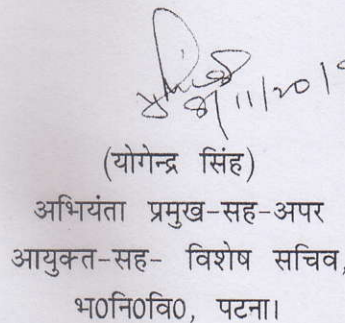 8/11/2019
(योगेन्द्र सिंह)
अभियंता प्रमुख-सह-अपर
आयुक्त-सह- विशेष सचिव,
भ0नि0वि0, पटना।